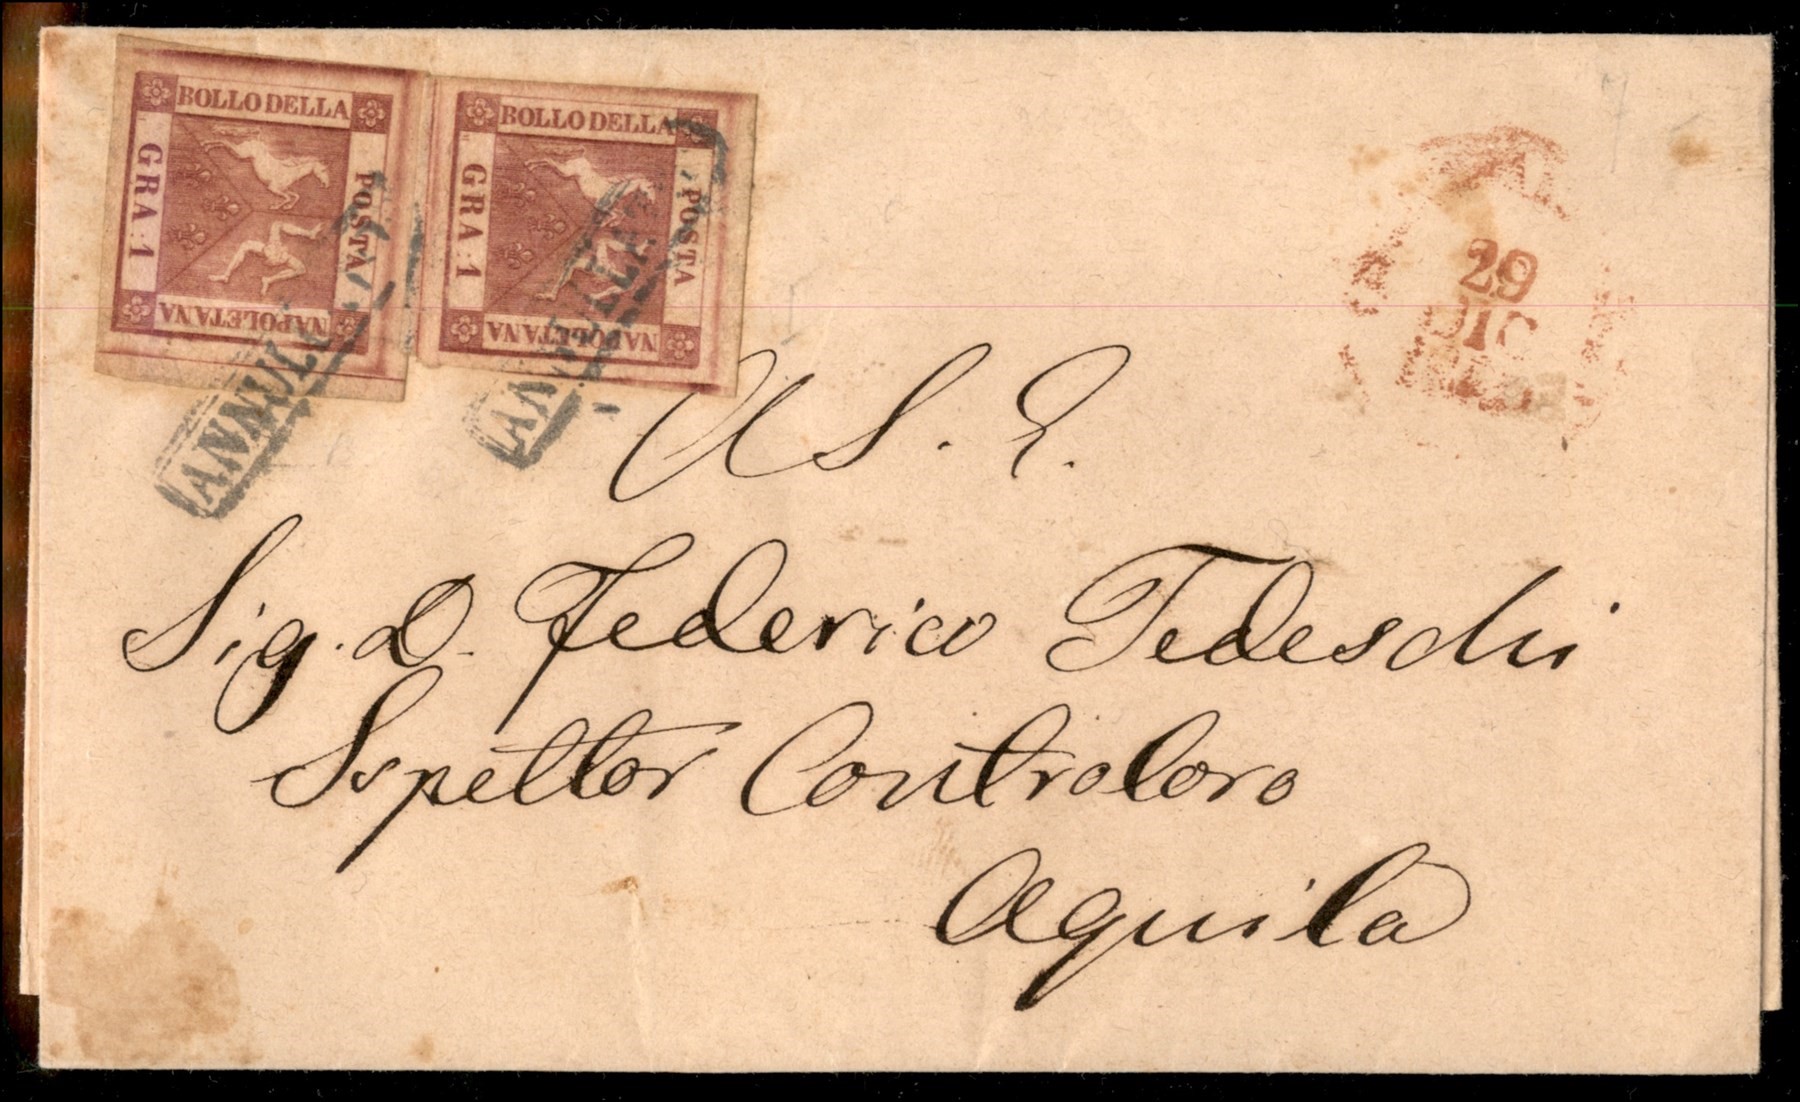 BOLLO DELLA
POSTA
NAPOLETANA
GRA 1
BOLLO DELLA
POSTA
NAPOLETANA
GRA 1
ANNULLATO
29
DIC
A S. E.
Sig. D. Federico Tedeschi
Ispettor Controloro
Aquila